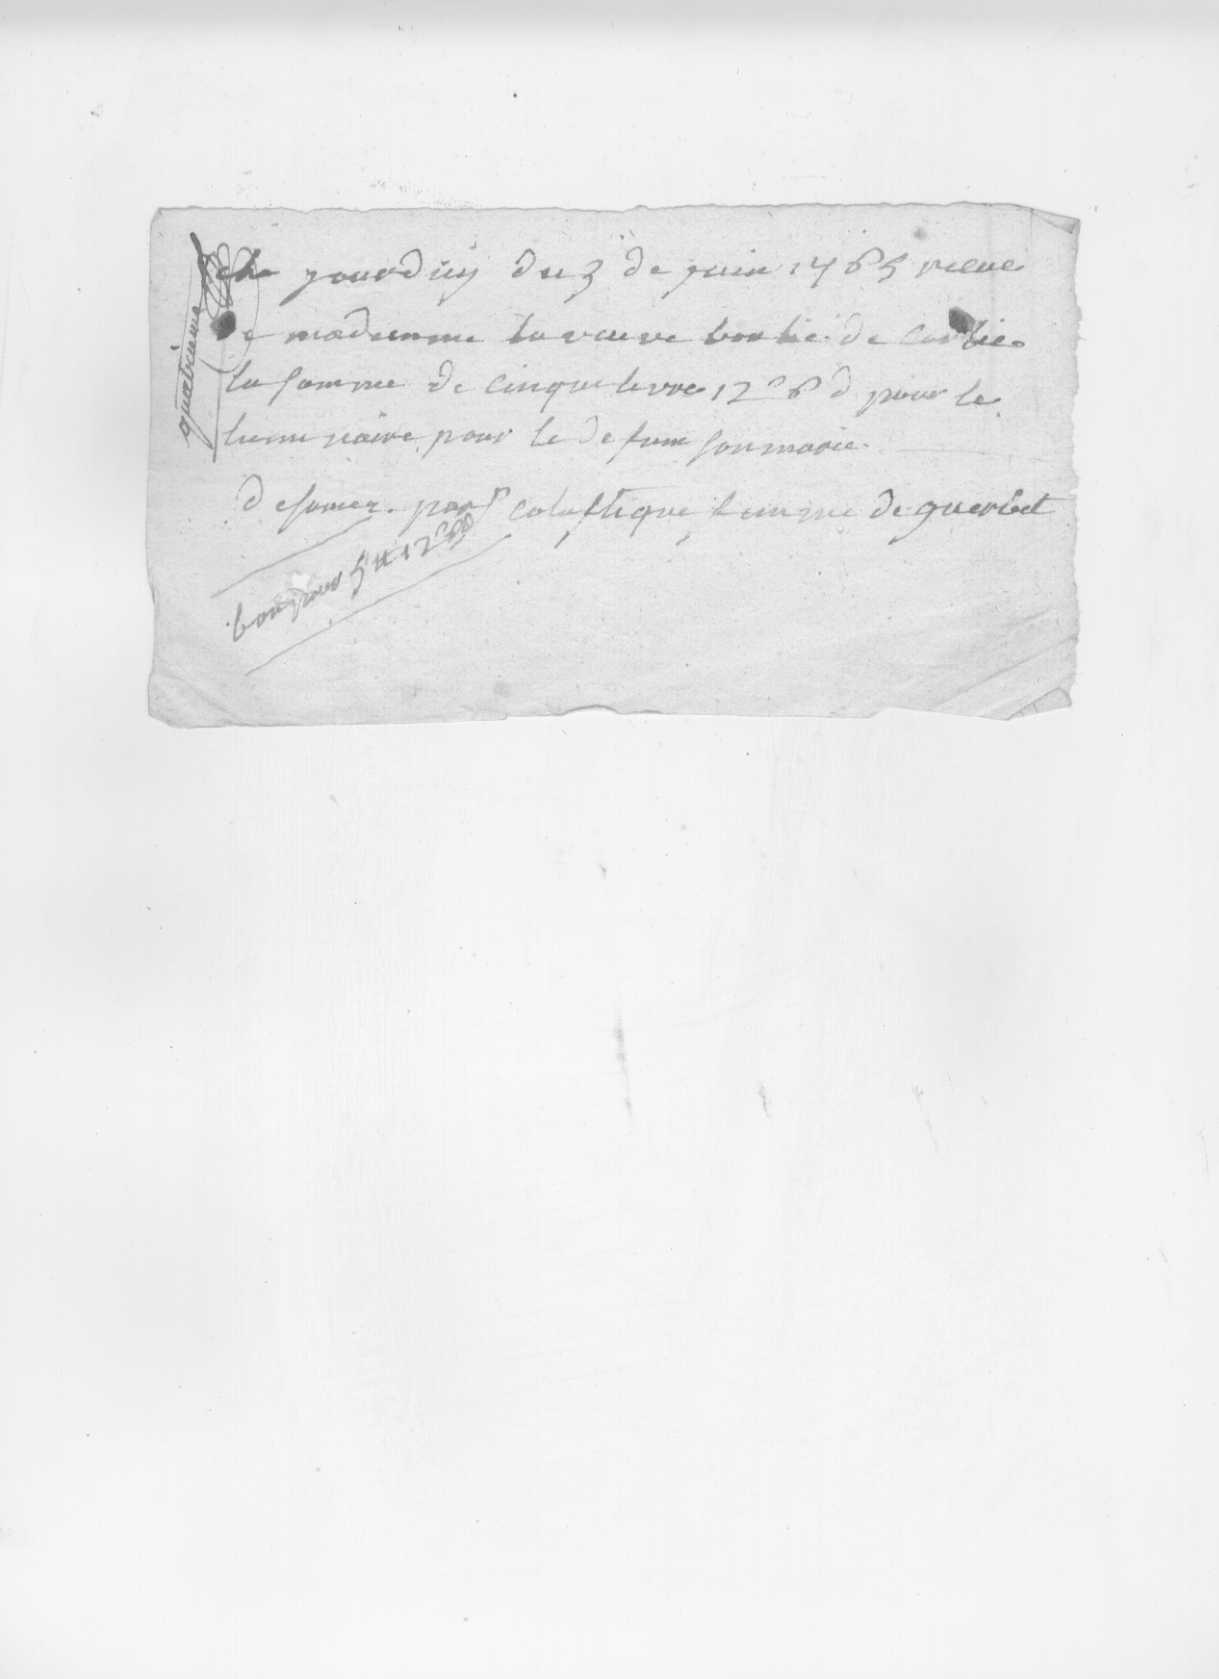 quatrieme
jourduÿ du 3 de juin 1765 receue
de madamme la veuve de Corbie
la somme de cinque livre 12 s 6 d pour le
luminaire pour le defun son marie
par colastique femme de querbet
bon pour 5 ₶ 12 s 6 d